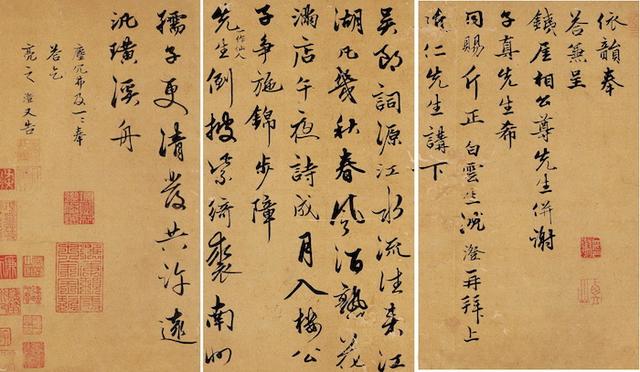 依韻奉
答兼呈
鐵厓相公尊先生併謝
子真先生希
同賜斤正 白雲 澄再拜上
仁先生講下
吳郎詞源江水流往来江
湖凡幾秋春風酒熟花
滿店午夜詩成月入樓公
子争施錦步障
一作仙人
先生倒披紫綺裘南州
孺子更清發共許遠
汎璜溪舟
塵冗弗及一一奉
答乞
亮之 澄又告